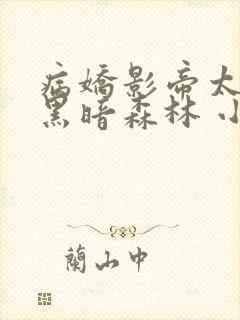 病嬌影帝太
黑暗森林 小
蘭山中